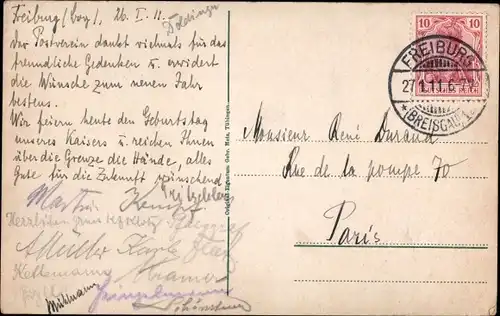 Freiburg (Bbg), 26. I. 11.
Der Postverein dankt vielmals für das
freundliche Gedenken u. erwidert
die Wünsche zum neuen Jahr
bestens.
Wir feiern heute den Geburtstag
unseres Kaisers u. reichen Ihnen
über die Grenze die Hände, alles
Gute für die Zukunft wünschend
Martin Kempf
Herzlichen
A Müller Karl
Kettemann Kramer
Mühlmann
Schönstein
Original Eigentum Gebr. Metz, Tübingen
10 10
FREIBURG
27.1.11.6-7
(BREISGAU) 1
Monsieur René Durand
Rue de la pompe 70
Paris